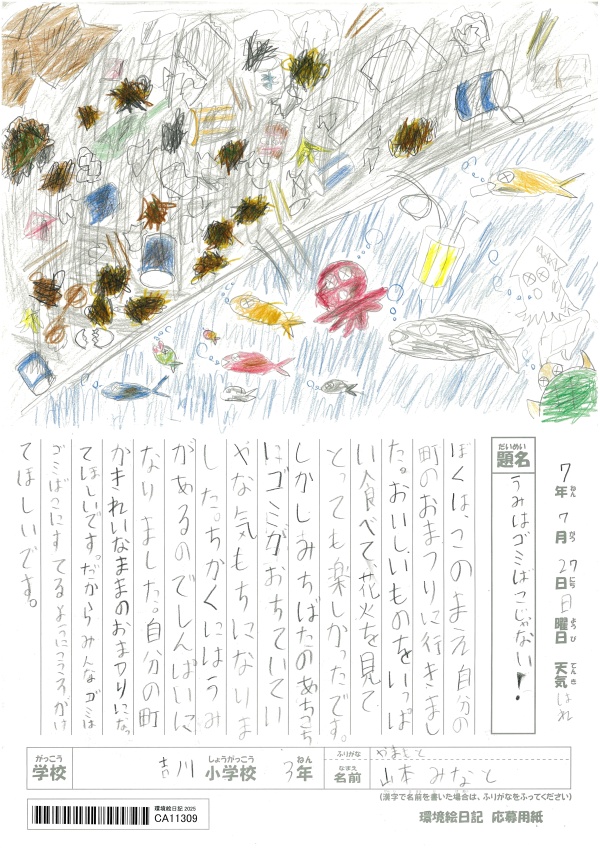 7年7月27日日曜日 天気 はれ
ねん がつ にち ようび てんき
だいめい
題名
うみはゴミばこじゃない!
ぼくは、このまえ自分の
町のおまつりに行きまし
た。おいしいものをいっぱ
い食べて花火を見て
とっても楽しかったです。
しかしみちばたのあちこち
にゴミがおちていてい
やな気もちになりま
した。ちかくにはうみ
があるのでしんぱいに
なりました。自分の町
がきれいなままのおまつりになっ
てほしいです。だからみんなゴミは
ゴミばこにすてるようにこころがけ
てほしいです。
がっこう
学校
吉川
しょうがっこう
小学校
3
ねん
年
ふりがな
やまもと
なまえ
名前
山本みなと
(漢字で名前を書いた場合は、ふりがなをふってください)
環境絵日記 2025
CA11309
環境絵日記 応募用紙